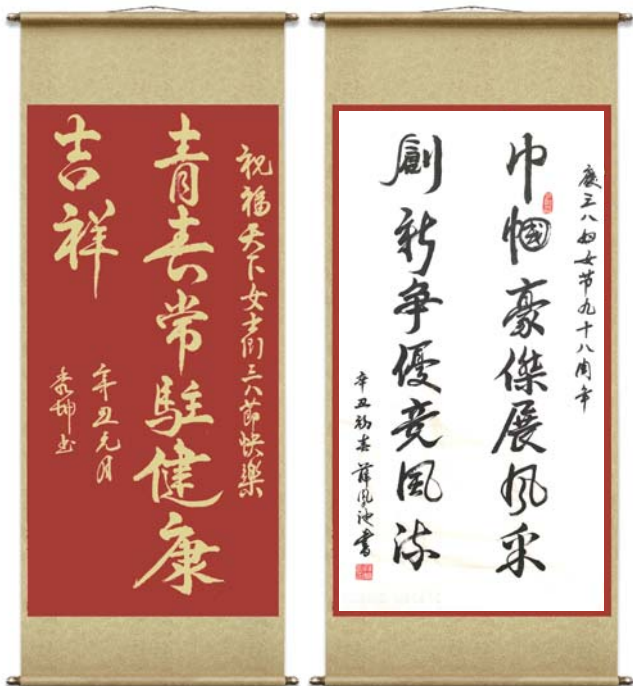 祝福天下女士们三八節快樂
青春常駐健康
吉祥
辛丑元月
坤书
慶三八妇女节九十八周年
巾幗豪傑展风采
創新争優竞風流
辛丑初春 薛凤池書